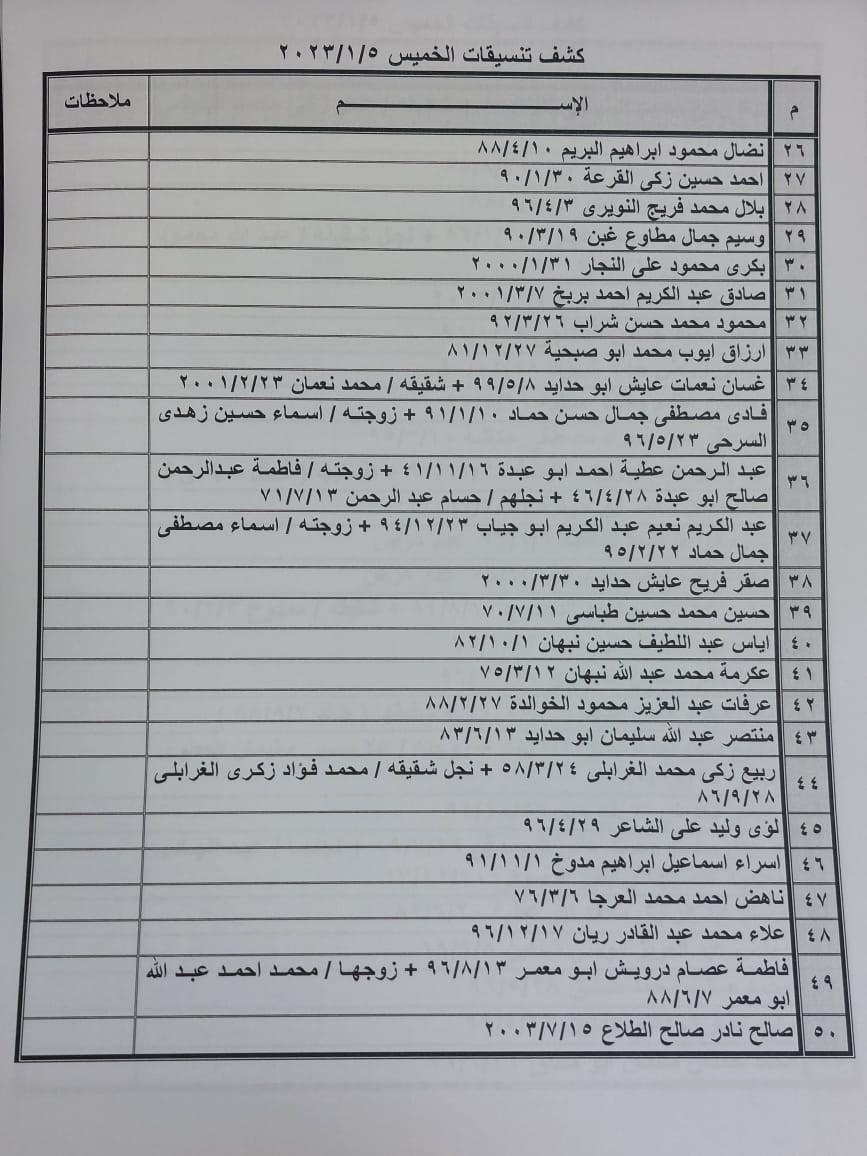 كشف تنسيقات الخميس ٢٠٢٣/١/٥
م الإسم ملاحظات
٢٦ نضال محمود ابراهيم البريم ٨٨/٤/١٠
٢٧ احمد حسين زكى القرعة ٩٠/١/٣٠
٢٨ بلال محمد فريج النويرى ٩٦/٤/٣
٢٩ وسيم جمال مطاوع غبن ٩٠/٣/١٩
٣٠ بكرى محمود على النجار ٢٠٠٠/١/٣١
٣١ صادق عبد الكريم احمد بربخ ٢٠٠١/٣/٧
٣٢ محمود محمد حسن شراب ٩٢/٣/٢٦
٣٣ ارزاق ايوب محمد ابو صبحية ٨١/١٢/٢٧
٣٤ غسان نعمات عايش ابو حدايد ٩٩/٥/٨ + شقيقه / محمد نعمان ٢٠٠١/٢/٢٣
٣٥ فادى مصطفى جمال حسن حماد ٩١/١/١٠ + زوجته / اسماء حسين زهدى
السرحى ٩٦/٥/٢٣
٣٦ عبد الرحمن عطية احمد ابو عبدة ٤١/١١/١٦ + زوجته / فاطمة عبدالرحمن
صالح ابو عبدة ٤٦/٤/٢٨ + نجلهم / حسام عبد الرحمن ٧١/٧/١٣
٣٧ عبد الكريم نعيم عبد الكريم ابو جياب ٩٤/١٢/٢٣ + زوجته / اسماء مصطفى
جمال حماد ٩٥/٢/٢٢
٣٨ صقر فريح عايش حدايد ٢٠٠٠/٣/٣٠
٣٩ حسين محمد حسين طباسى ٧٠/٧/١١
٤٠ اياس عبد اللطيف حسين نبهان ٨٢/١٠/١
٤١ عكرمة محمد عبد الله نبهان ٧٥/٣/١٢
٤٢ عرفات عبد العزيز محمود الخوالدة ٨٨/٢/٢٧
٤٣ منتصر عبد الله سليمان ابو حدايد ٨٣/٦/١٣
٤٤ ربيع زكى محمد الغرابلى ٥٨/٣/٢٤ + نجل شقيقه / محمد فؤاد زكرى الغرابلى
٨٦/٩/٢٨
٤٥ لؤى وليد على الشاعر ٩٦/٤/٢٩
٤٦ اسراء اسماعيل ابراهيم مدوخ ٩١/١١/١
٤٧ ناهض احمد محمد العرجا ٧٦/٣/٦
٤٨ علاء محمد عبد القادر ريان ٩٦/١٢/١٧
٤٩ فاطمة عصام درويش ابو معمر ٩٦/٨/١٣ + زوجها / محمد احمد عبد الله
ابو معمر ٨٨/٦/٧
٥٠ صالح نادر صالح الطلاع ٢٠٠٣/٧/١٥